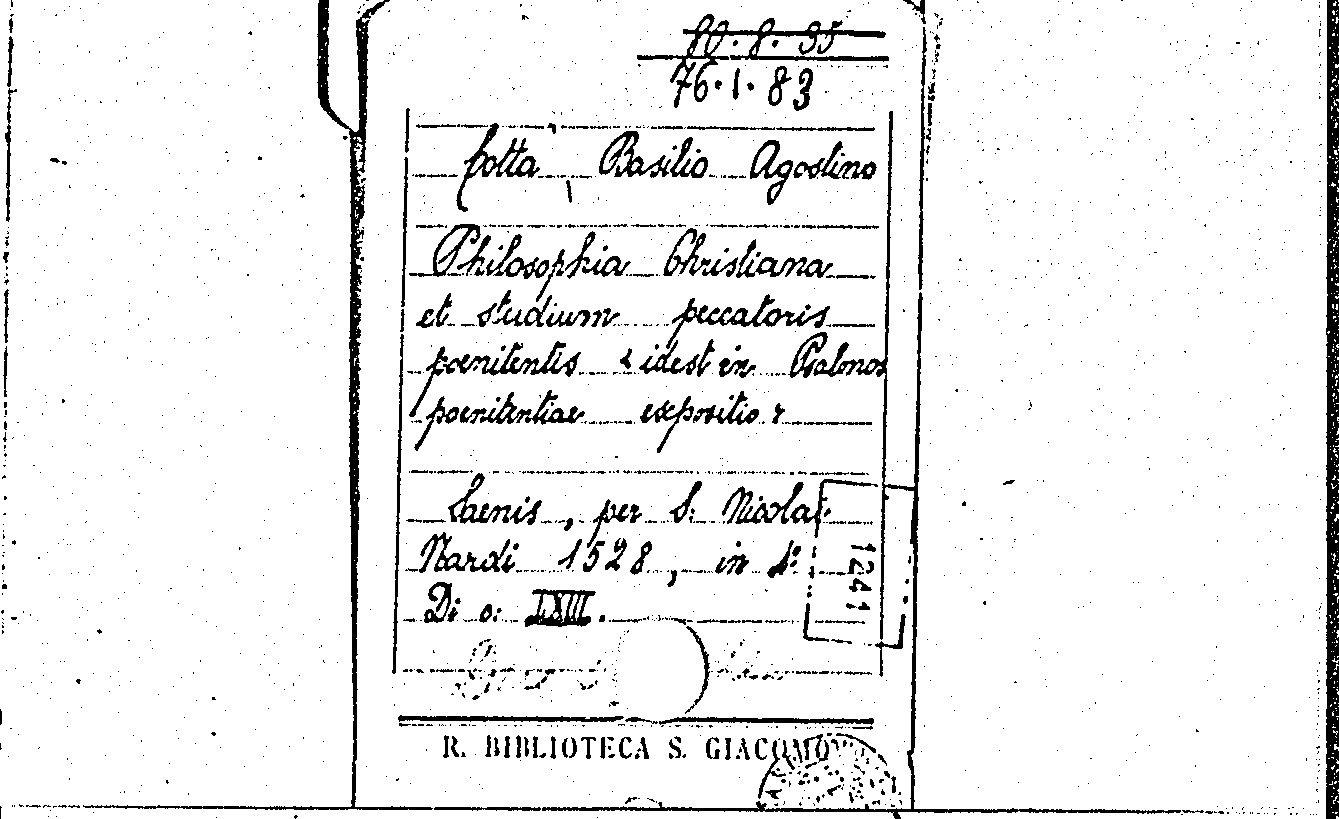 80. 8. 35
76. 1. 83
Cotta, Basilio Agostino
Philosophia Christiana
et studium peccatoris
poenitentis & idest in Psalmos
poenitentiae expositio
Saenis, per S. Nicolai
Nardi 1528, in 4°
Di c: LXIII.
1241
R. BIBLIOTECA S. GIACOMO